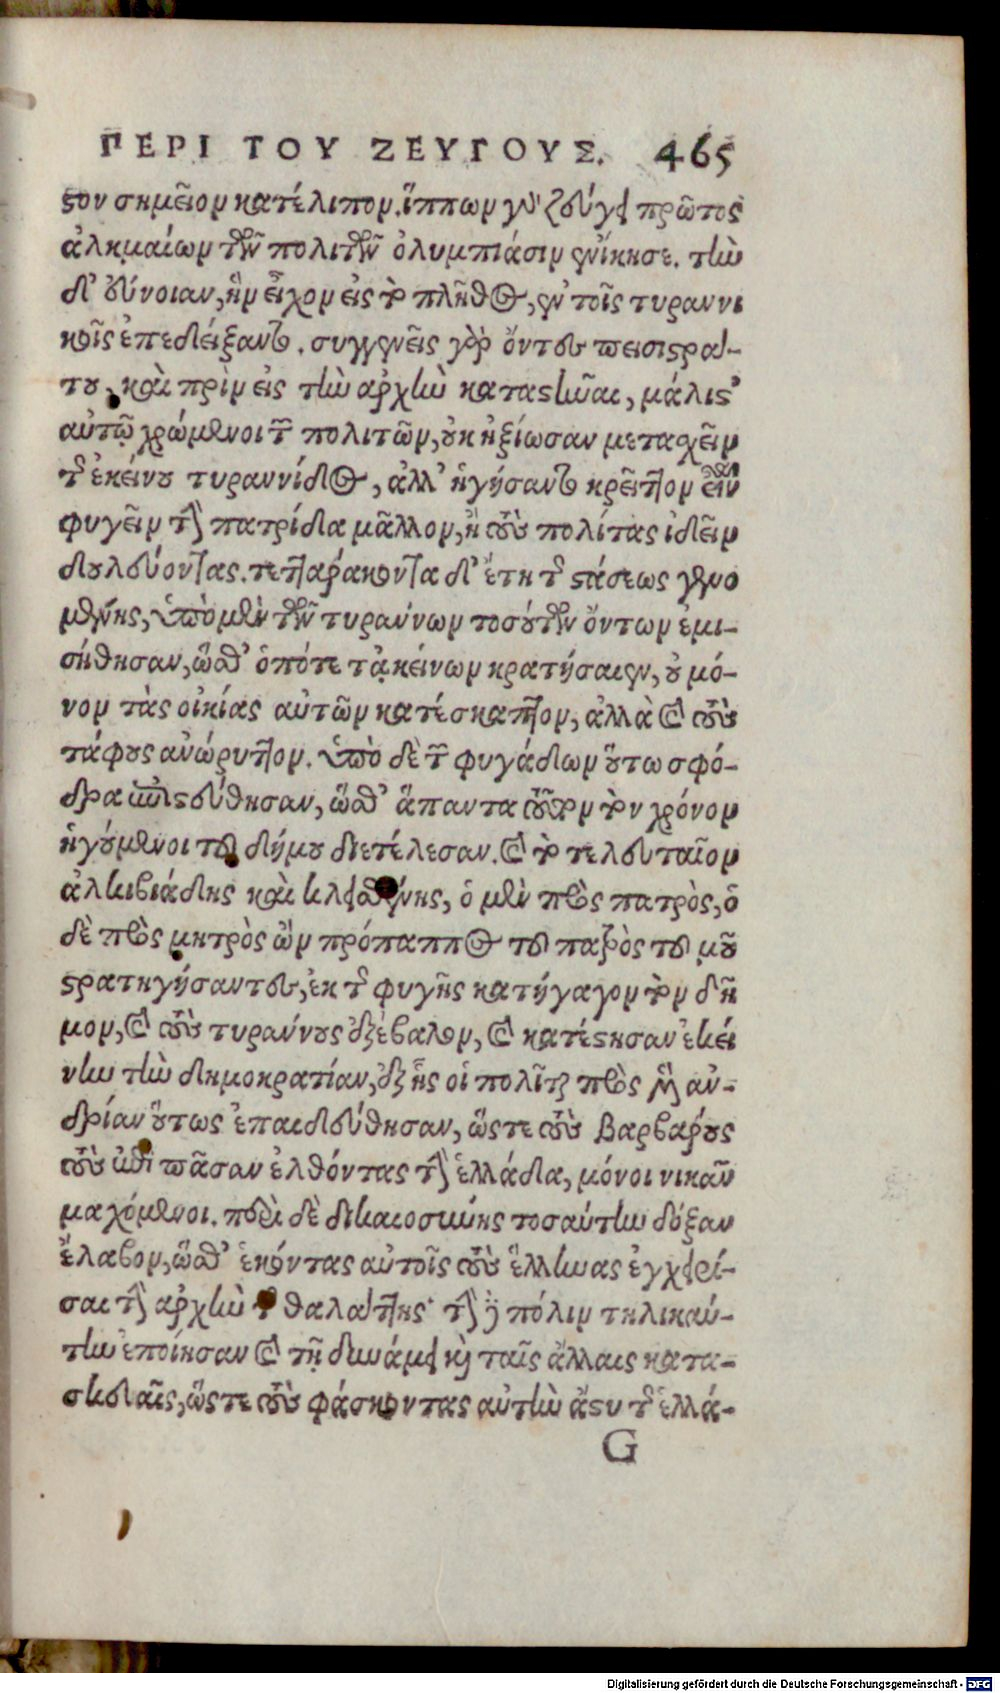 ΠΕΡΙ ΤΟΥ ΖΕΥΓΟΥΣ. 465
στον σημεῖον κατέλιπον. ἵππων γὸ ζεύγει πρῶτος
ἀλκμαίων τῶν πολιτῶν ὀλυμπιάσιν ἐνίκησε. τὴν
δ' εὔνοιαν, ἣν εἶχον εἰς τὸ πλῆθος, ἐν τοῖς τυραννι
κοῖς ἐπεδείξαντο. συγγενεῖς γὰρ ὄντες πεισιστρά-
του, καὶ πρὶν εἰς τὴν ἀρχὴν καταστῆναι, μάλιστ'
αὐτῷ χρώμενοι τῶν πολιτῶν, οὐκ ἠξίωσαν μετασχεῖν
τῆς ἐκείνου τυραννίδος, ἀλλ' ἡγήσαντο κρεῖττον εἶναι
φυγεῖν τὴν πατρίδα μᾶλλον, ἢ τοὺς πολίτας ἰδεῖν
δουλεύοντας. τετταράκοντα δ' ἔτη τῆς στάσεως γενο
μένης, ὑπὸ μὲν τῶν τυράννων τοσούτων ὄντων ἐμι-
σήθησαν, ὥσθ' ὁπότε τἀκείνων κρατήσαιεν, οὐ μό-
νον τὰς οἰκίας αὐτῶν κατέσκαπτον, ἀλλὰ καὶ τοὺς
τάφους ἀνώρυττον. ὑπὸ δὲ τῶν φυγάδων οὕτω σφό-
δρα ἐπιστεύθησαν, ὥσθ' ἅπαντα τοῦτον τὸν χρόνον
ἡγούμενοι τοῦ δήμου διετέλεσαν. καὶ τὸ τελευταῖον
ἀλκιβιάδης καὶ κλεισθένης, ὁ μὲν πρὸς πατρὸς, ὁ
δὲ πρὸς μητρὸς ὢν πρόπαππος τοῦ πατρὸς τοῦ μοῦ
στρατηγήσαντες, ἐκ τῆς φυγῆς κατήγαγον τὸν δῆ
μον, καὶ τοὺς τυράννους ἐξέβαλον, καὶ κατέστησαν ἐκεί
νην τὴν δημοκρατίαν, ἐξ ἧς οἱ πολῖται πρὸς μὲν ἀν-
δρίαν οὕτως ἐπαιδεύθησαν, ὥστε τοὺς βαρβάρους
τοὺς ἐπὶ πᾶσαν ἐλθόντας τὴν ἑλλάδα, μόνοι νικᾶν
μαχόμενοι. περὶ δὲ δικαιοσύνης τοσαύτην δόξαν
ἔλαβον, ὥσθ' ἑκόντας αὐτοῖς τοὺς ἕλληνας ἐγχειρί-
σαι τὴν ἀρχὴν τῆς θαλάττης· τὴν δὲ πόλιν τηλικαύ-
την ἐποίησαν καὶ τῇ δυνάμει καὶ ταῖς ἄλλαις κατα-
σκευαῖς, ὥστε τοὺς φάσκοντας αὐτὴν ἄστυ τῆς ἑλλά-
G
Digitalisierung gefördert durch die Deutsche Forschungsgemeinschaft - DFG